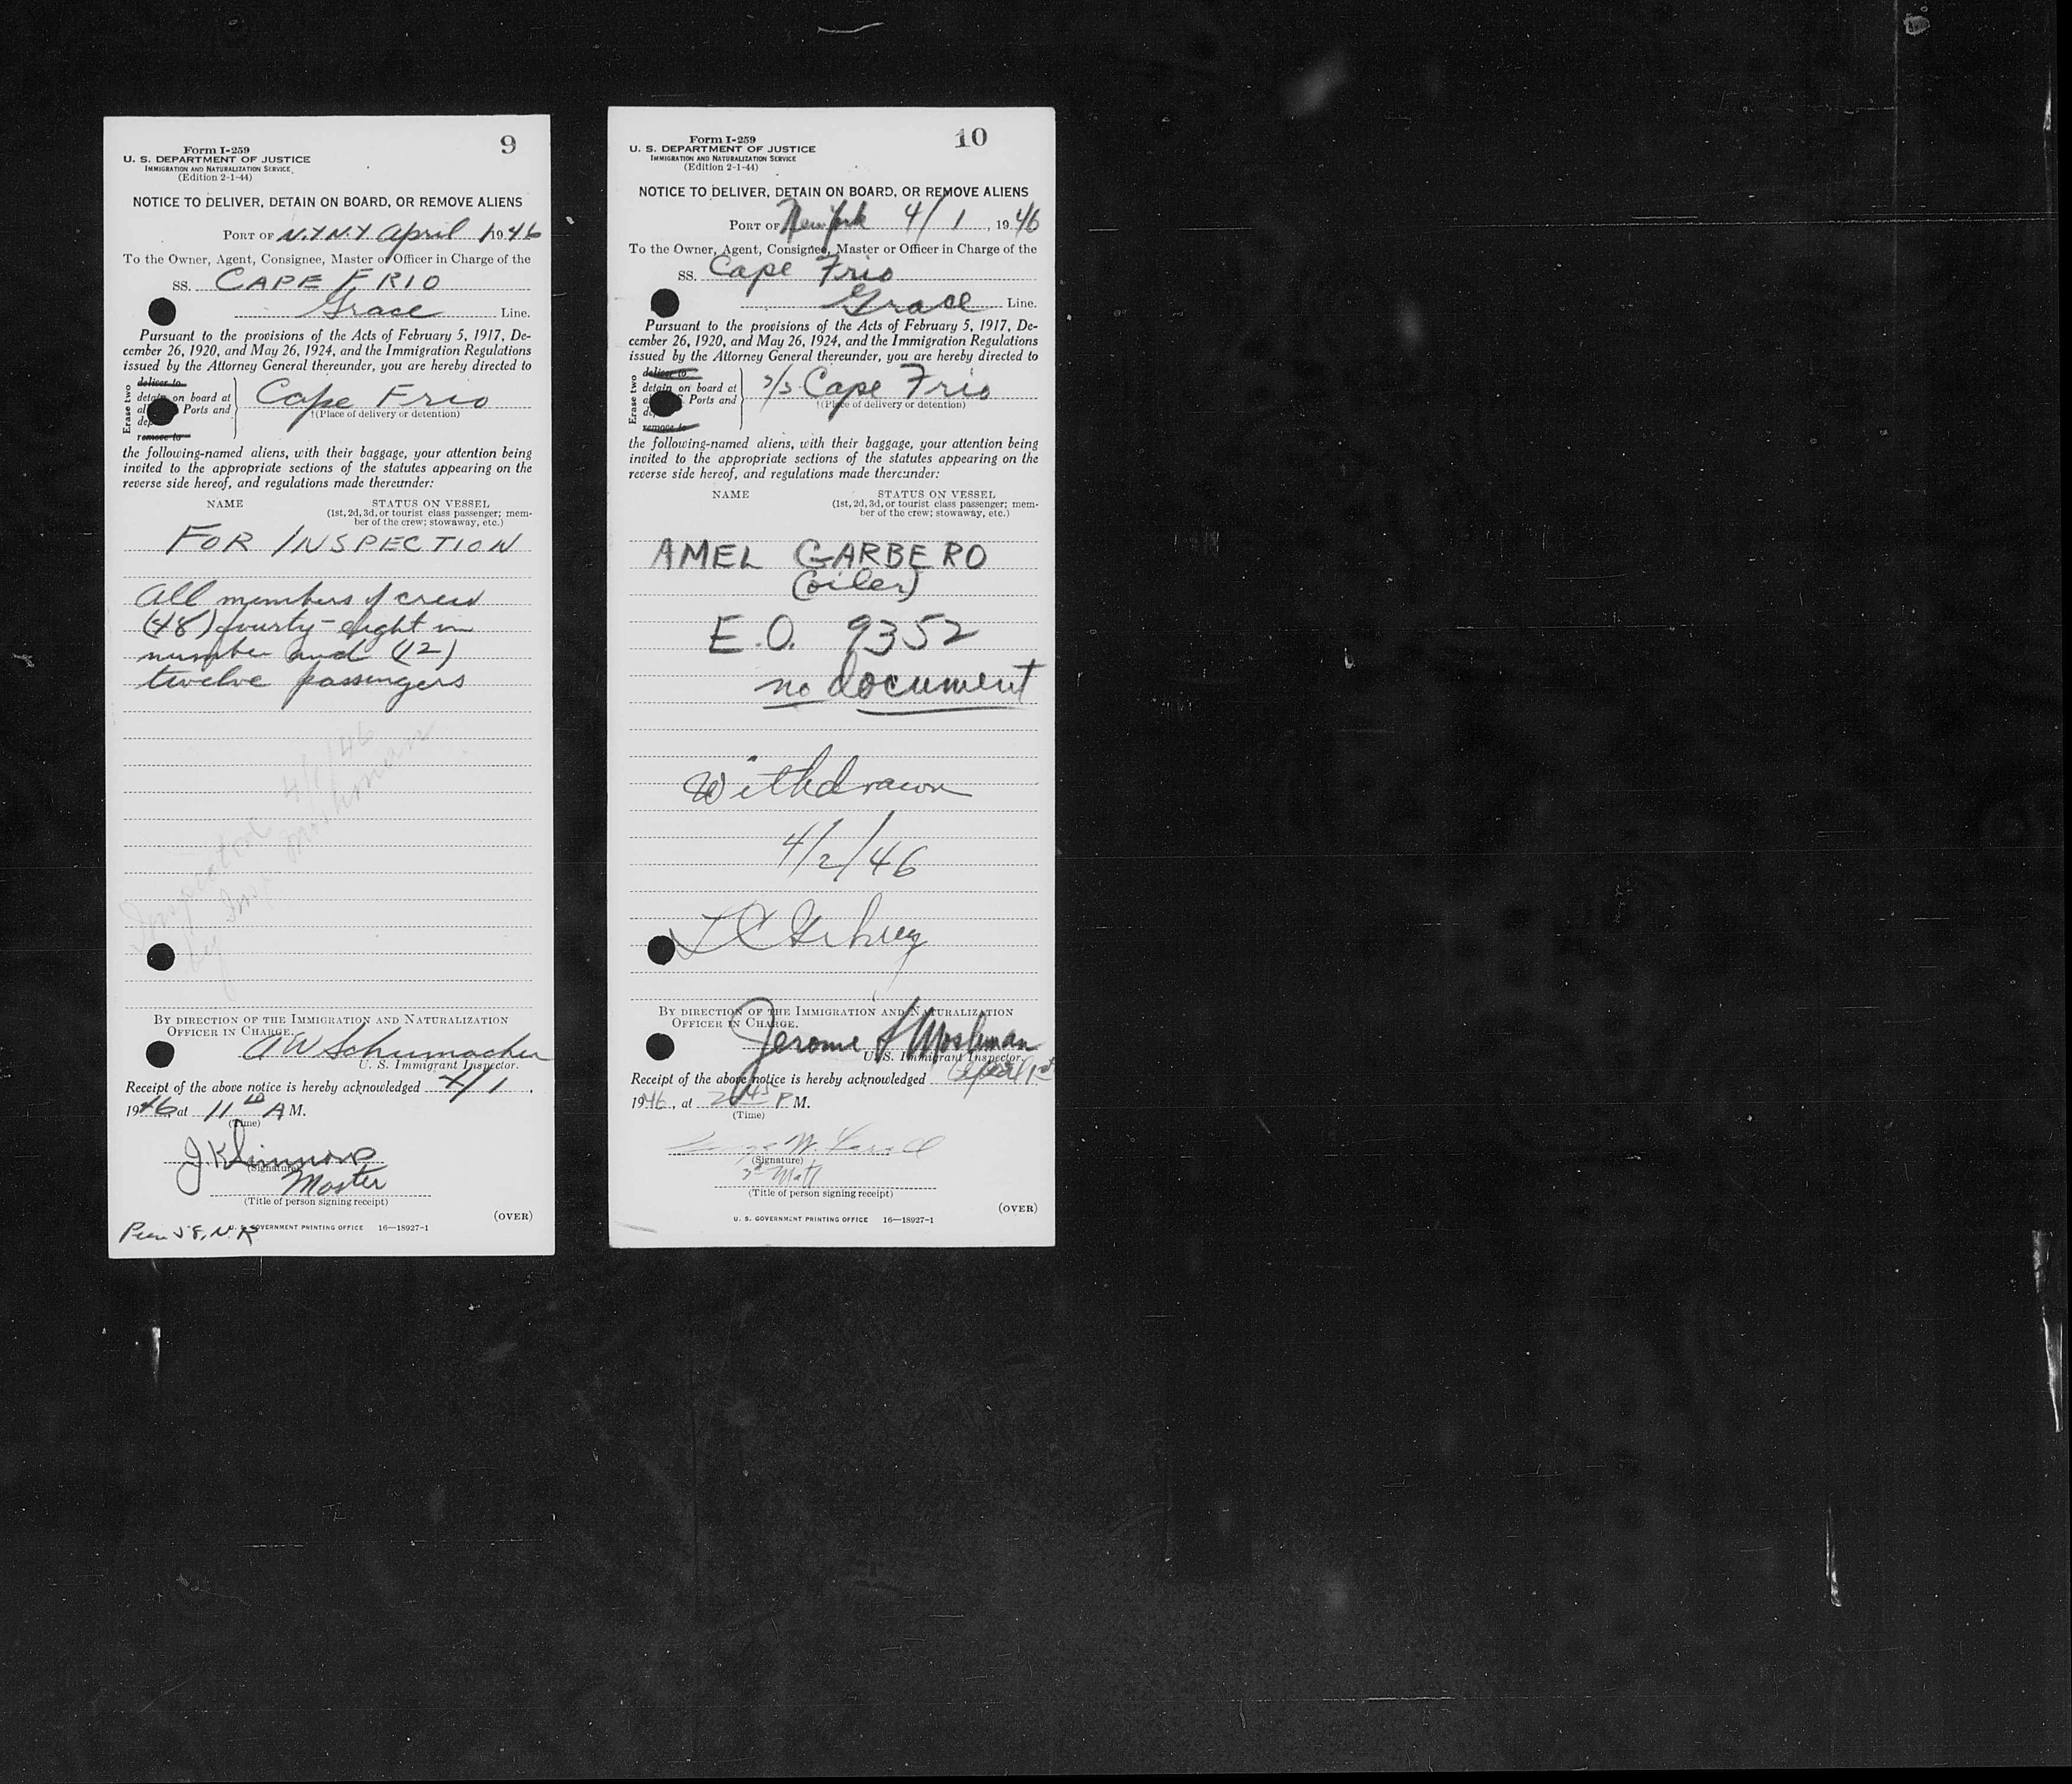 9
Form I-259
U. S. DEPARTMENT OF JUSTICE
IMMIGRATION AND NATURALIZATION SERVICE
(Edition 2-1-44)
NOTICE TO DELIVER, DETAIN ON BOARD, OR REMOVE ALIENS
PORT OF N.Y.N.Y April 1 1946
To the Owner, Agent, Consignee, Master or Officer in Charge of the
SS. CAPE FRIO
Grace Line.
Pursuant to the provisions of the Acts of February 5, 1917, De-
cember 26, 1920, and May 26, 1924, and the Immigration Regulations
issued by the Attorney General thereunder, you are hereby directed to
Erase two
deliver to
detain on board at
Ports and
remove to
Cape Frio
†(Place of delivery or detention)
the following-named aliens, with their baggage, your attention being
invited to the appropriate sections of the statutes appearing on the
reverse side hereof, and regulations made thereunder:
NAME STATUS ON VESSEL
(1st, 2d, 3d, or tourist class passenger; mem-
ber of the crew; stowaway, etc.)
FOR INSPECTION
All members of crew
(48) fourty-eight in
number and (12)
twelve passengers
Inspected 4/1/46
by Insp Moshman
BY DIRECTION OF THE IMMIGRATION AND NATURALIZATION
OFFICER IN CHARGE.
A W Schumacher
U. S. Immigrant Inspector.
Receipt of the above notice is hereby acknowledged 4/1,
1946 at 11 10 A M.
(Time)
(Signature)
Master
(Title of person signing receipt)
(OVER)
U. S. GOVERNMENT PRINTING OFFICE 16—18927-1
58, N.R
10
Form I-259
U. S. DEPARTMENT OF JUSTICE
IMMIGRATION AND NATURALIZATION SERVICE
(Edition 2-1-44)
NOTICE TO DELIVER, DETAIN ON BOARD, OR REMOVE ALIENS
PORT OF New York 4/1, 1946
To the Owner, Agent, Consignee, Master or Officer in Charge of the
SS. Cape Frio
Grace Line.
Pursuant to the provisions of the Acts of February 5, 1917, De-
cember 26, 1920, and May 26, 1924, and the Immigration Regulations
issued by the Attorney General thereunder, you are hereby directed to
Erase two
deliver to
detain on board at
Ports and
remove to
S/S Cape Frio
†(Place of delivery or detention)
the following-named aliens, with their baggage, your attention being
invited to the appropriate sections of the statutes appearing on the
reverse side hereof, and regulations made thereunder:
NAME STATUS ON VESSEL
(1st, 2d, 3d, or tourist class passenger; mem-
ber of the crew; stowaway, etc.)
AMEL GARBERO
(oiler)
E.O. 9352
no document
Withdrawn
4/2/46
BY DIRECTION OF THE IMMIGRATION AND NATURALIZATION
OFFICER IN CHARGE.
Jerome S Moshman
U. S. Immigrant Inspector.
Receipt of the above notice is hereby acknowledged April 1st
1946, at 2:45 P M.
(Time)
(Signature)
(Title of person signing receipt)
(OVER)
U. S. GOVERNMENT PRINTING OFFICE 16—18927-1